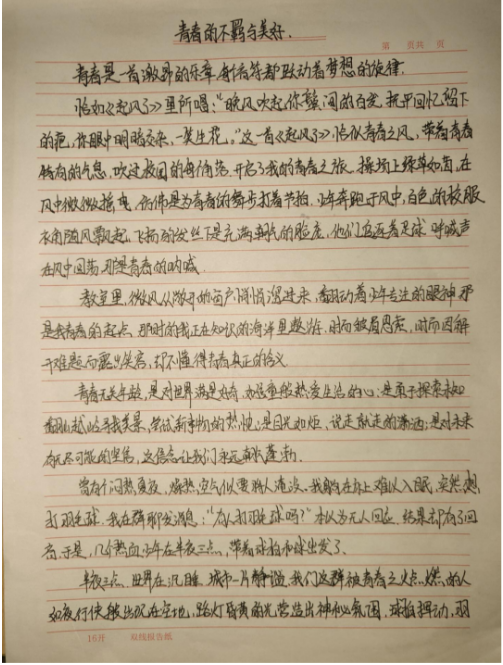 青春的不羁与美好.
第 页共 页
青春是一首激昂的乐章,每个音符都跃动着梦想的旋律.
恰如《起风了》里所唱:"晚风吹起你鬓间的白发,抚平回忆留下
的疤,你眼中明暗交杂,一笑生花。"这一首《起风了》恰似青春之风,带着青春
独有的气息,吹过校园的每个角落,开启了我的青春之旅。操场上绿草如茵,在
风中微微摇曳,仿佛是为青春的舞步打着节拍。少年奔跑于风中,白色的校服
衣角随风飘起,飞扬的发丝下是充满朝气的脸庞,他们追逐着足球,呼喊声
在风中回荡,那是青春的呐喊.
教室里,微风从敞开的窗户悄悄溜进来,翻动着少年专注的眼神,那
是我青春的起点。那时的我正在知识的海洋里遨游,时而皱眉思索,时而因解
开难题而露出笑容,却不懂得青春真正的含义
青春无关年龄,是对世界满是好奇,如孩童般热爱生活的心;是勇于探索未知
翻山越岭寻找美景,尝试新事物的热忱;是目光如炬,说走就走的潇洒;是对未来
有无尽可能的坚信,这信念让我们永远朝气蓬勃.
曾有个闷热夏夜,燥热空气似要将人淹没。我躺在床上难以入眠,突然想
打羽毛球,我在群聊发消息:"有人打羽毛球吗?"本以为无人回应,结果却有了回
音。于是,几个热血少年在半夜三点,带着球拍和球出发了.
半夜三点,世界在沉睡,城市一片静谧。我们这群被青春之火点燃的人
如夜行侠般出现在空地,路灯昏黄的光营造出神秘氛围,球拍挥动,羽
16开 双线报告纸